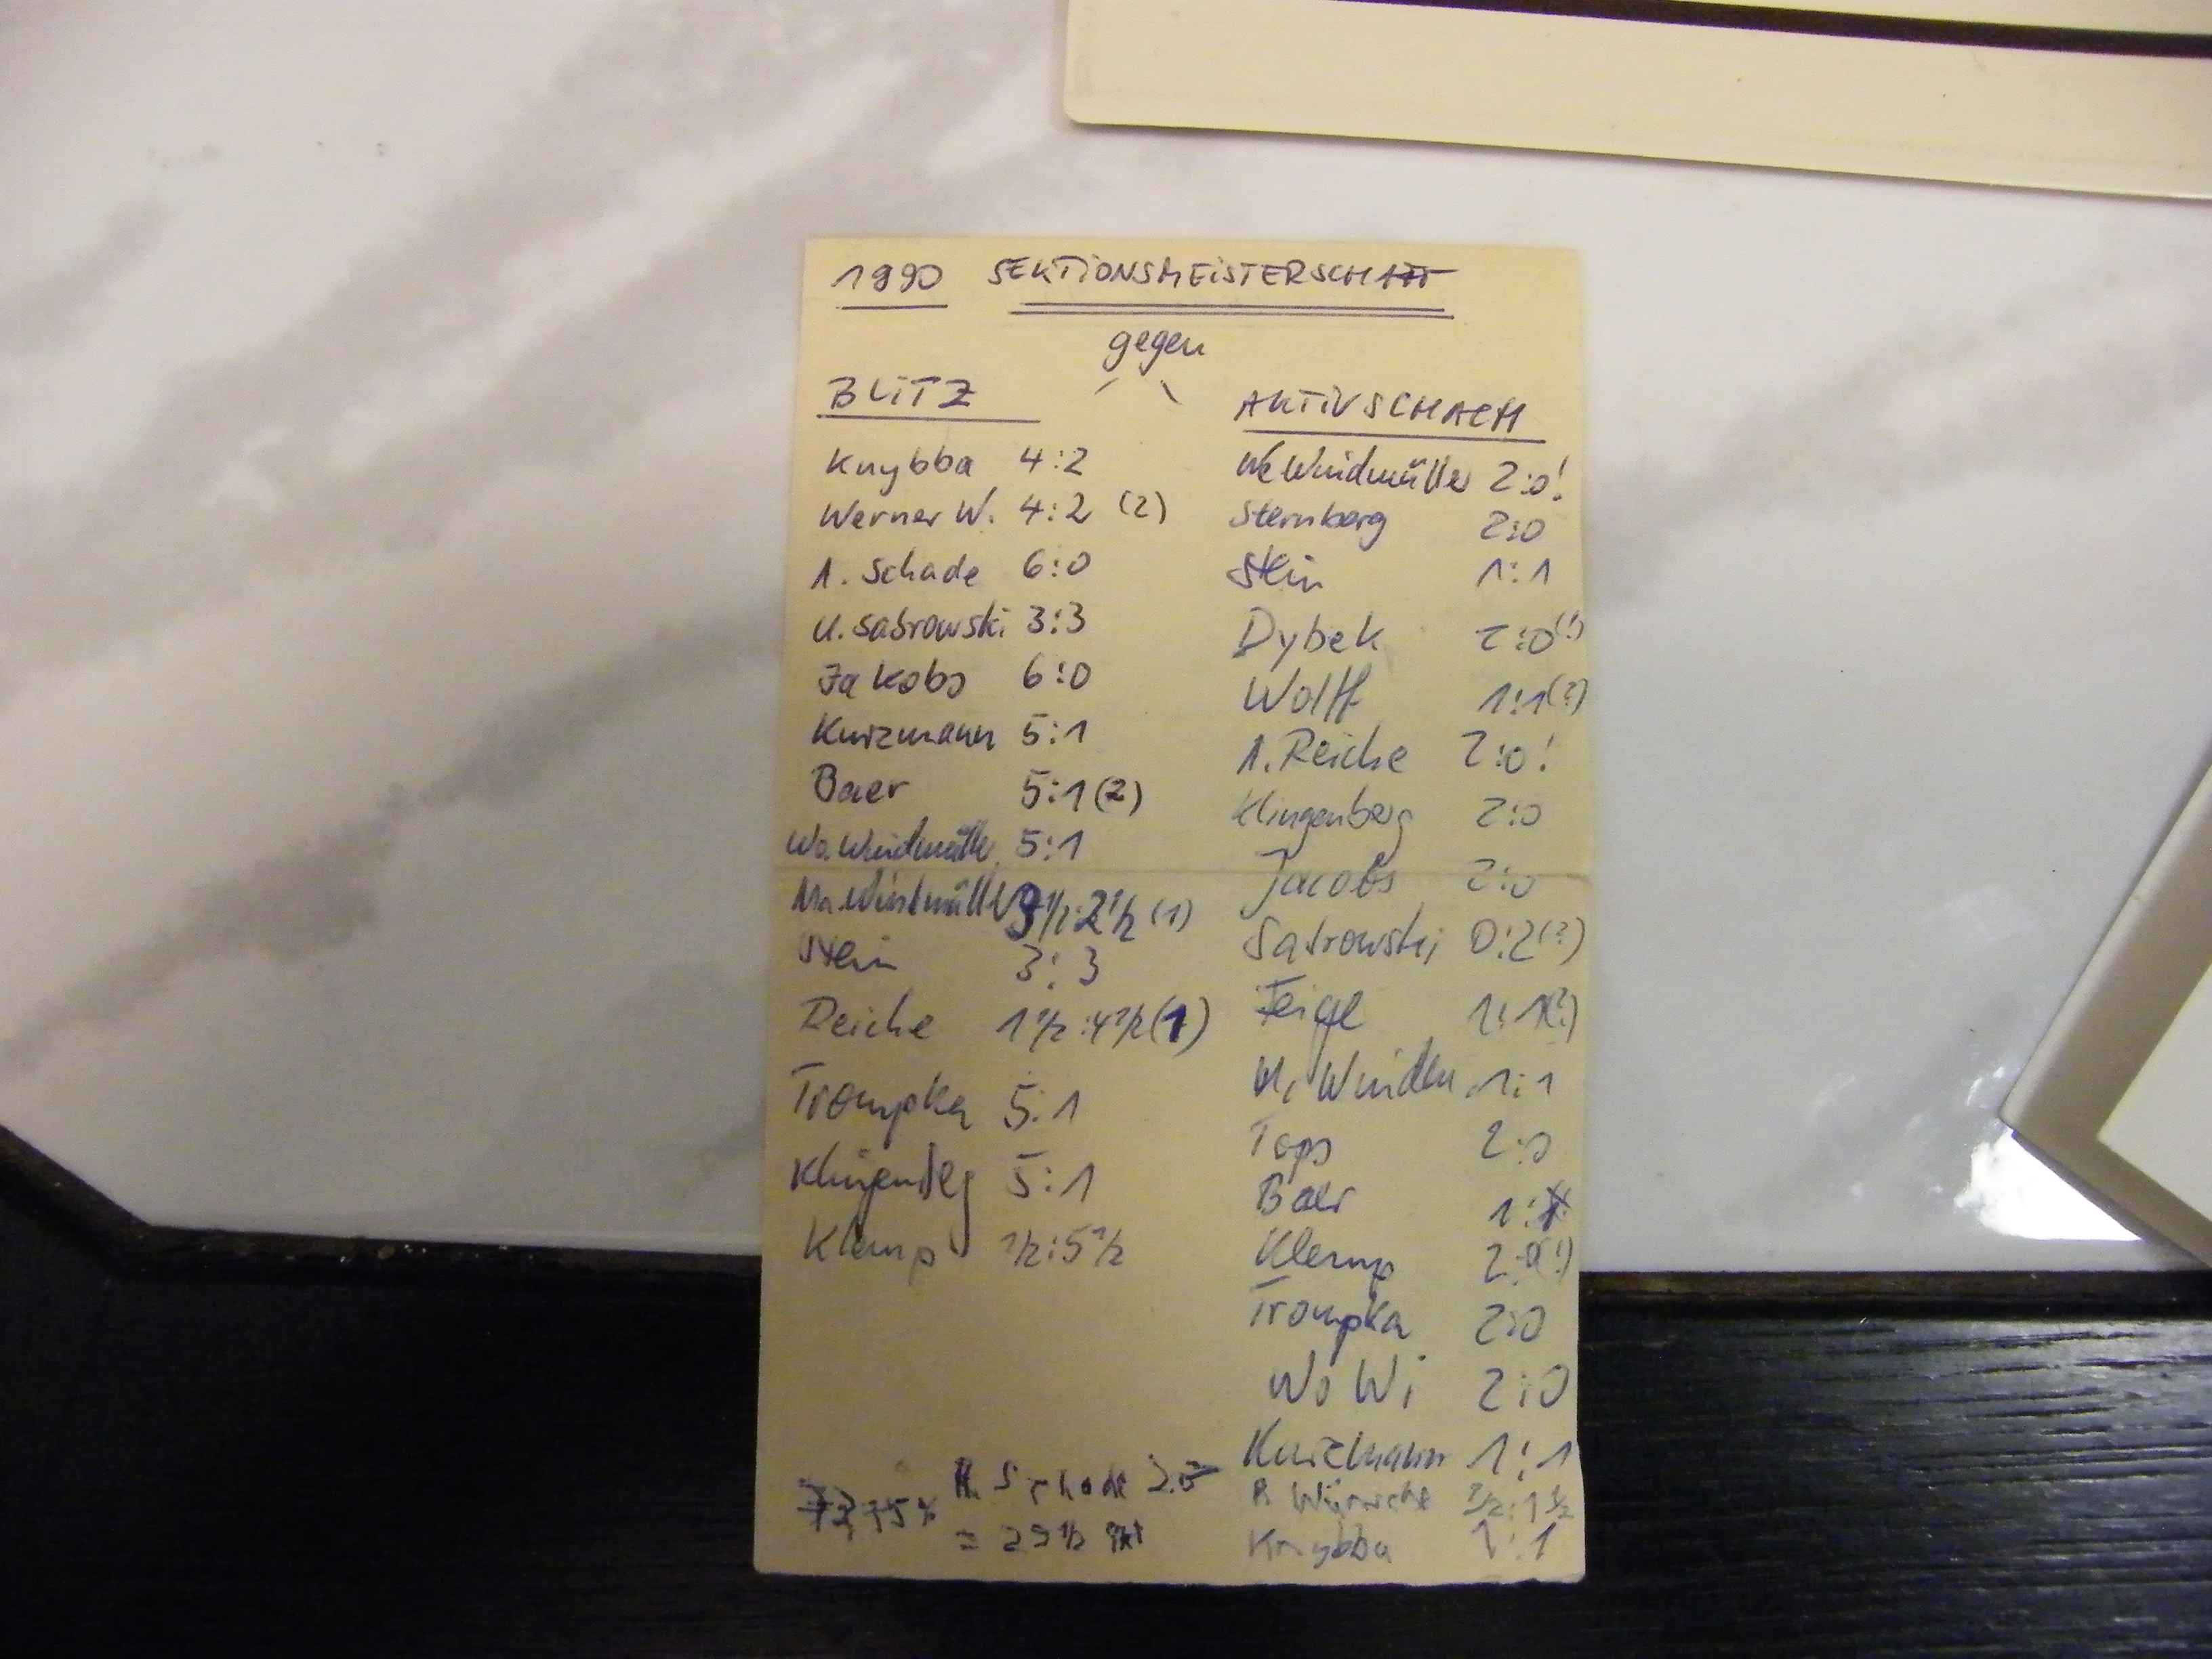 1990 SEKTIONSMEISTERSCHAFT
gegen
BLITZ
Knybba 4:2
Werner W. 4:2 (2)
A. Schade 6:0
U. Sabrowski 3:3
Jakobs 6:0
Kurzmann 5:1
Baer 5:1 (2)
Wo. Windmüller 5:1
Ma. Windmüller 3½:2½ (1)
Stein 3:3
Reiche 1½:4½ (1)
Trompka 5:1
Klingenberg 5:1
Klemp ½:5½
AKTIVSCHACH
We Windmüller 2:0!
Sternberg 2:0
Stein 1:1
Dybek 2:0(!)
Wolff 1:1(?)
A. Reiche 2:0!
Klingenberg 2:0
Jacobs 2:0
Sabrowski 0:2(?)
Feigl 1:1(?)
M. Windm. 1:1
Tops 2:0
Baer 1:1
Klemp 2:0(!)
Trompka 2:0
Wo Wi 2:0
Kurzmann 1:1
R. Wünsche ½:1½
Knybba 1:1
73,75% A. Schade 2:0
= 29½ Pkt